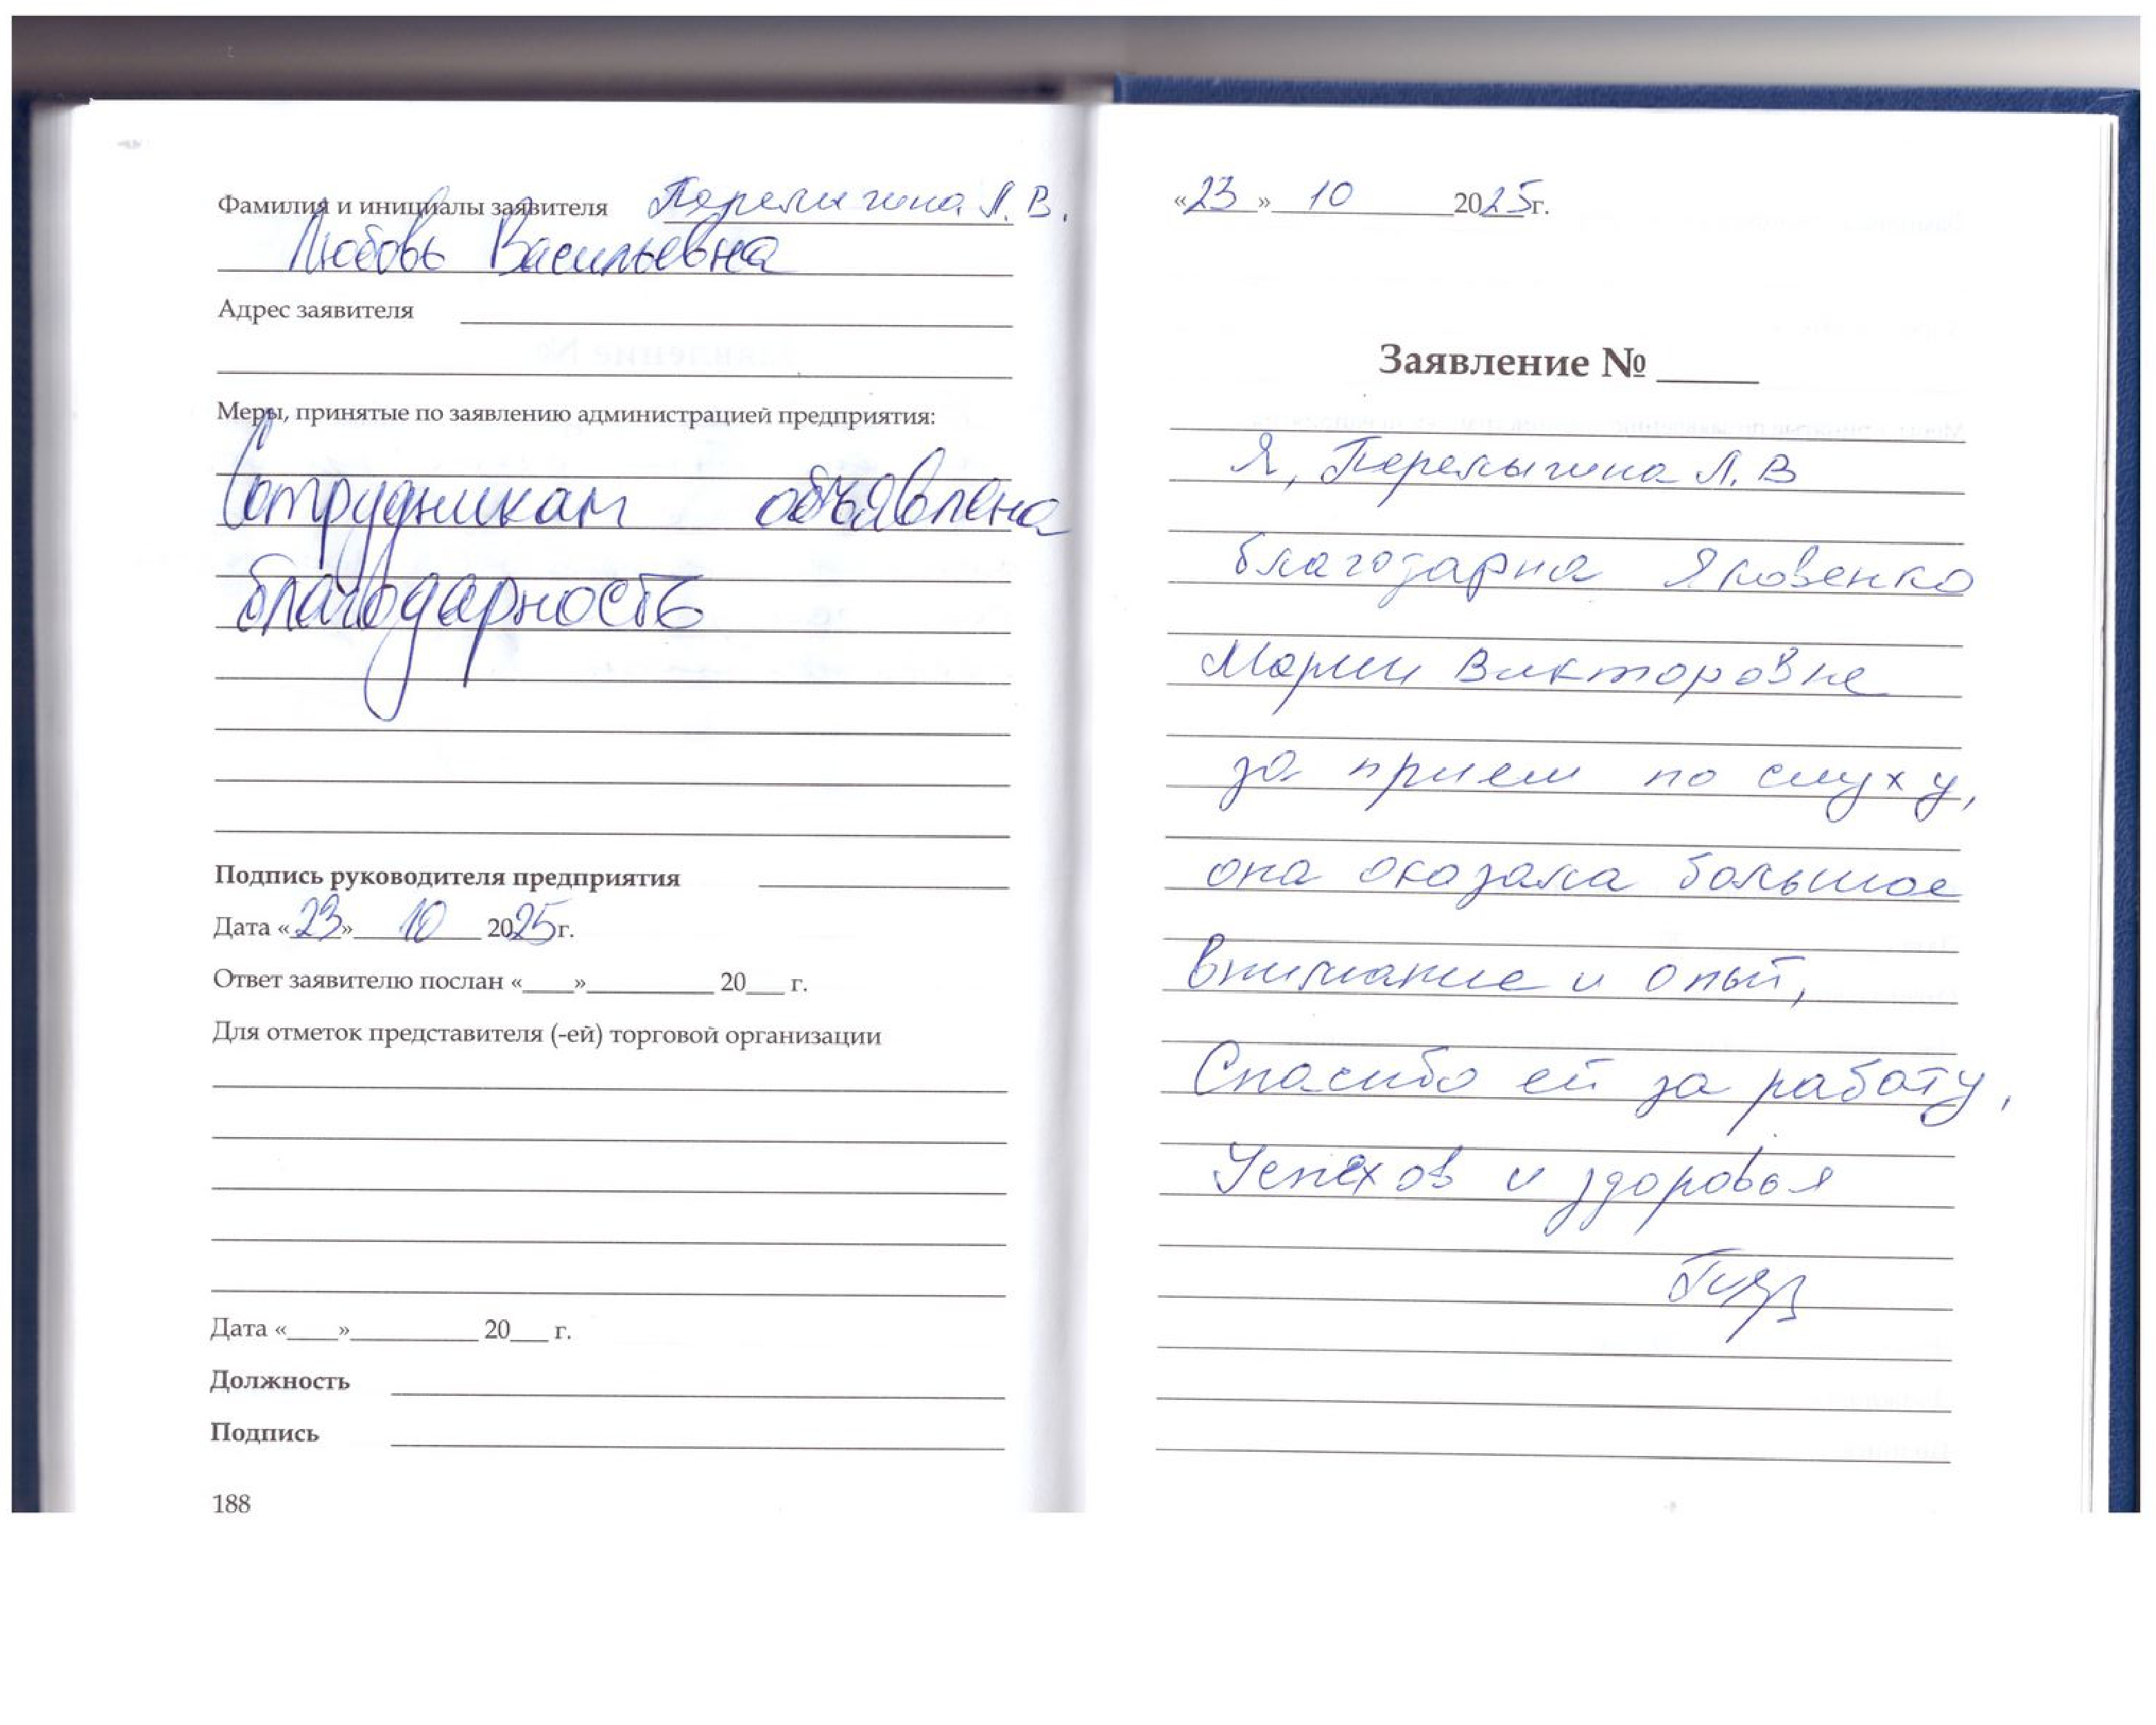 Фамилия и инициалы заявителя Перелыгина Л. В.
Любовь Васильевна
Адрес заявителя
Меры, принятые по заявлению администрацией предприятия:
Сотрудникам объявлена
благодарность
Подпись руководителя предприятия
Дата «23» 10 2025г.
Ответ заявителю послан «____»__________ 20___ г.
Для отметок представителя (-ей) торговой организации
Дата «____»__________ 20___ г.
Должность
Подпись
188
«23» 10 2025г.
Заявление № _____
Я, Перелыгина Л. В
благодарна Яковенко
Марии Викторовне
за прием по слуху,
она оказала большое
внимание и опыт,
Спасибо ей за работу,
Успехов и здоровья